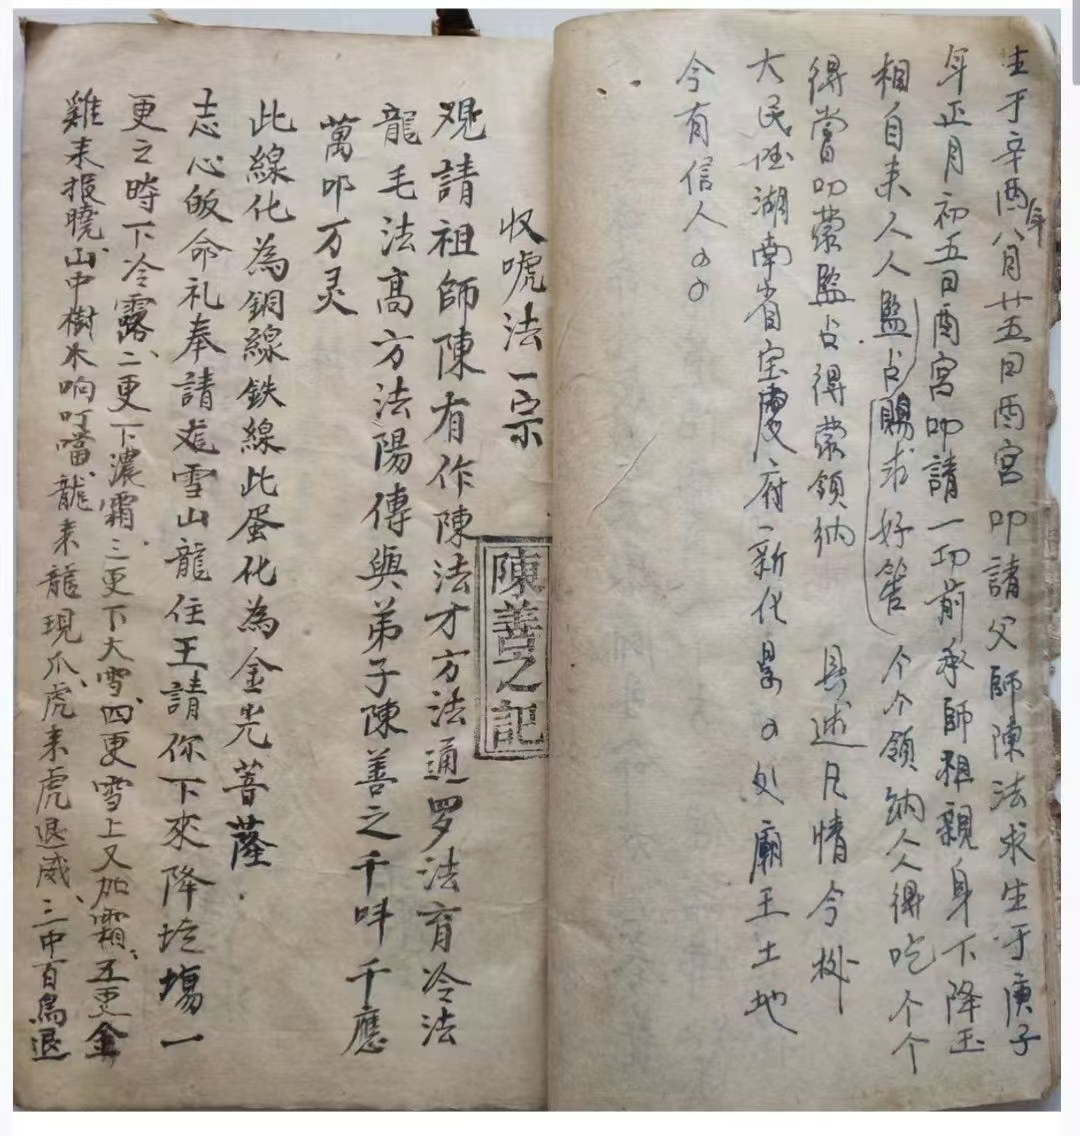 生于辛酉年八月廿五日酉宮叩請父師陳法求生于庚子
年正月初五日酉宮叩請一切前承師祖親身下降玉
相自来人人監占賜求好筶个个領納人人得吃个个
得當叩蒙監占得蒙領納 具述凡情今據
大民国湖南省宝慶府新化縣处廟王土地
今有信人
收唬法一宗
観請祖師陳有作陳法才方法通罗法育冷法
龍毛法高方法陽傳與弟子陳善之千吽千應
萬叩万灵
此線化為銅線鉄線此蛋化為金光菩薩
志心皈命礼奉請雪山龍住王請你下來降坛場一
更之時下冷露二更下濃霜三更下大雪四更雪上又加霜五更金
雞来报曉山中樹木响叮噹龍来龍現爪虎来虎退威三中百鳥退
陳善之記